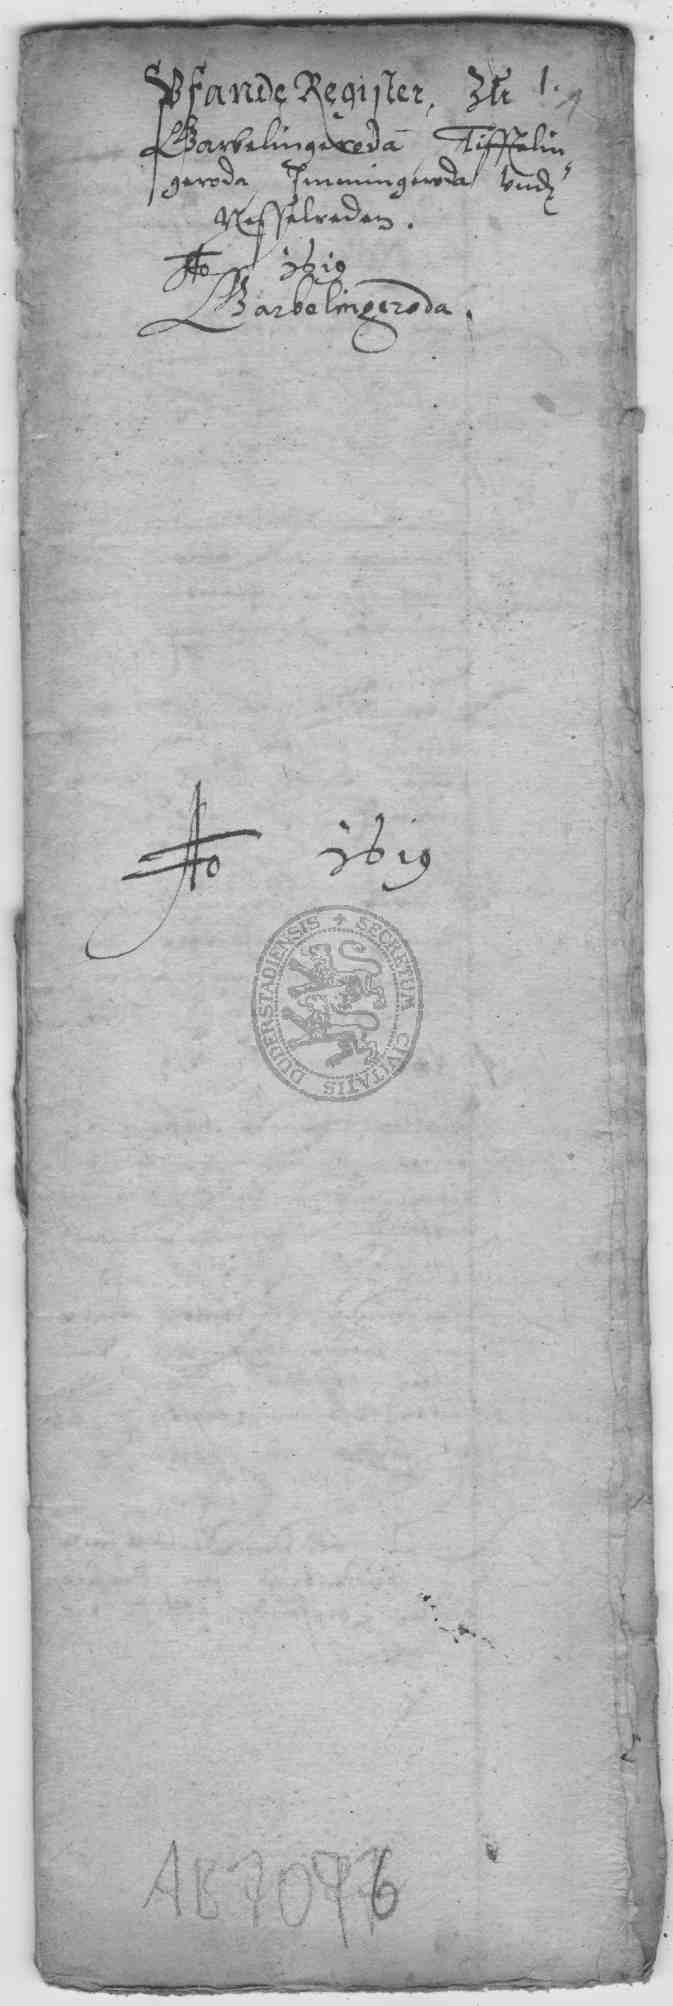 Pfande Register, Zur 1.
Barbelingeroda Tifftelin„
geroda Immingeroda Vndt
Nesselreden.
Ao 1619
Barbelingeroda.
Ao 1619
SECRETUM CIVITATIS DUDERSTADIENSIS
AB 7076